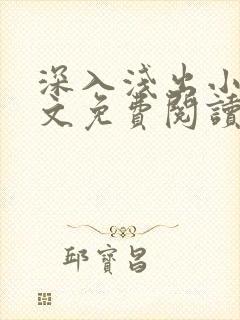 深入淺出小
文免費閱讀
邱寶昌